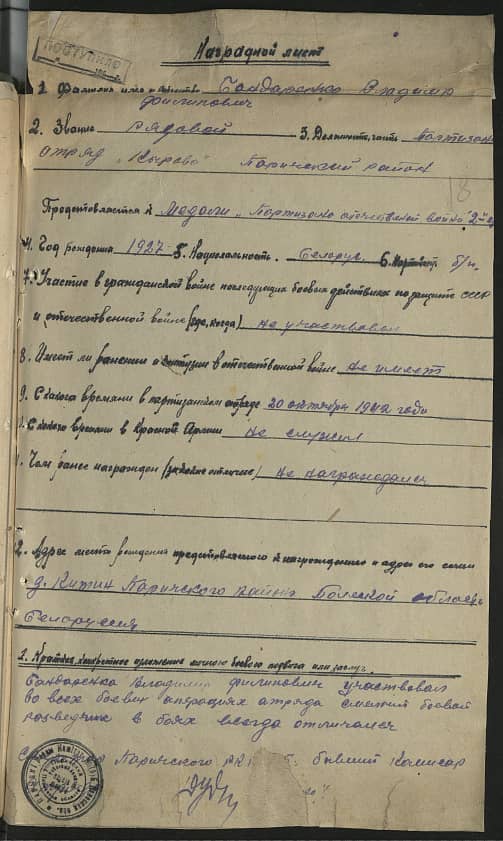 ПОСТУПИЛО
Наградной лист
1. Фамилия имя и отчество Бондаренко Владимир
Филипович
2. Звание рядовой 3. Должность, часть Партизан
отряд „Кирова" Паричский район
18
Представляется к Медали „Партизано отечественой войны" 2-й ст
4. Год рождения 1927 5. Национальность Белорус 6. Партийност б/п.
7. Участие в гражданской войне последующих боевых действиях по защите СССР
и отечественной войне (где, когда) не участвовал
8. Имеет ли ранения и контузии в отечественной войне не имеет
9. С какого времени в партизанском отряде 20 октября 1942 года
С какого времени в Красной Армии не служил
Чем ранее награжден (за какие отличие) не награждался
2. Адрес места рождения представляемого к награждению и адрес его семьи
д. Кнышин Паричского района Полеской област
Белоруссия
1. Краткое конкретное изложение личного боевого подвига или заслуг.
Бондаренко Владимир Филипович участвовал
во всех боевых операциях отряда смелый боевой
разведчик в боях всегда отличался
Паричского РК бывший Комисар